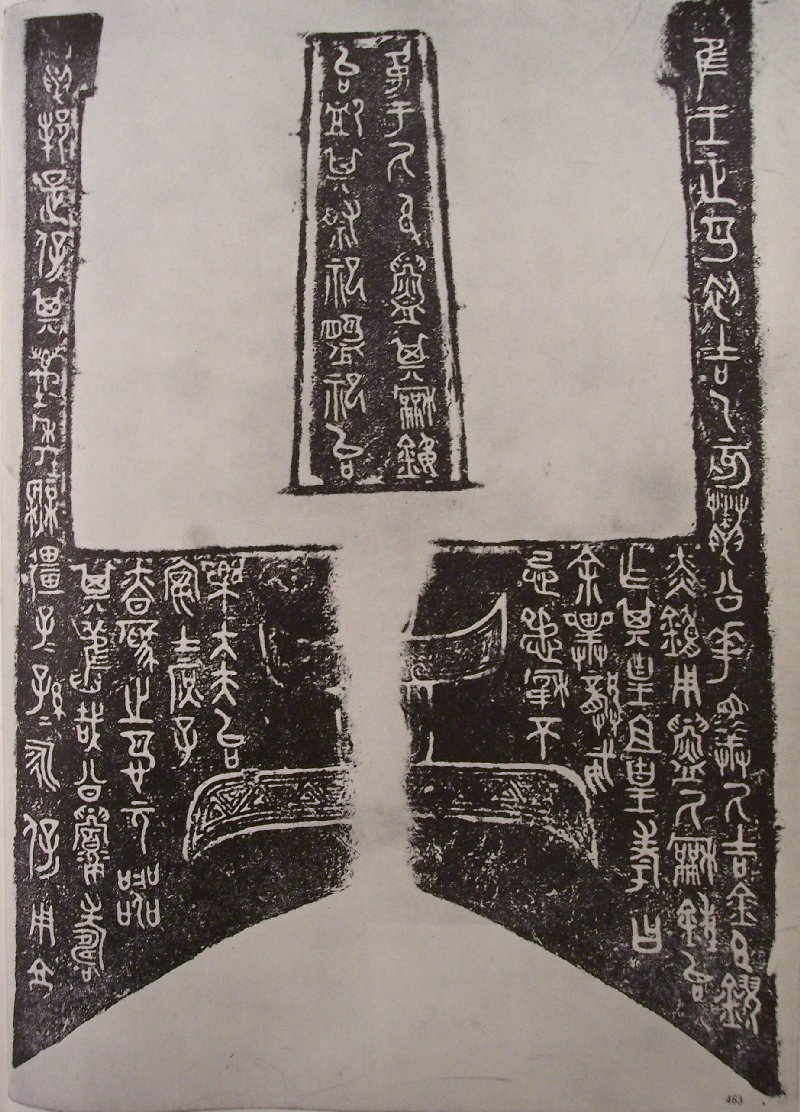 隹王正月初吉乙亥鼄公華擇厥吉金玄鏐
赤鏞用鑄厥龢鐘台
乍其皇且皇考曰
余畢龏威
忌盄穆不
㒸于厥身鑄其龢鐘
台卹其祭祀盟祀台
樂大夫台
宴士庶子
昚為之名元器
其舊哉公眉壽
鼄邦是保其萬年無疆子=孫=永保用享
463